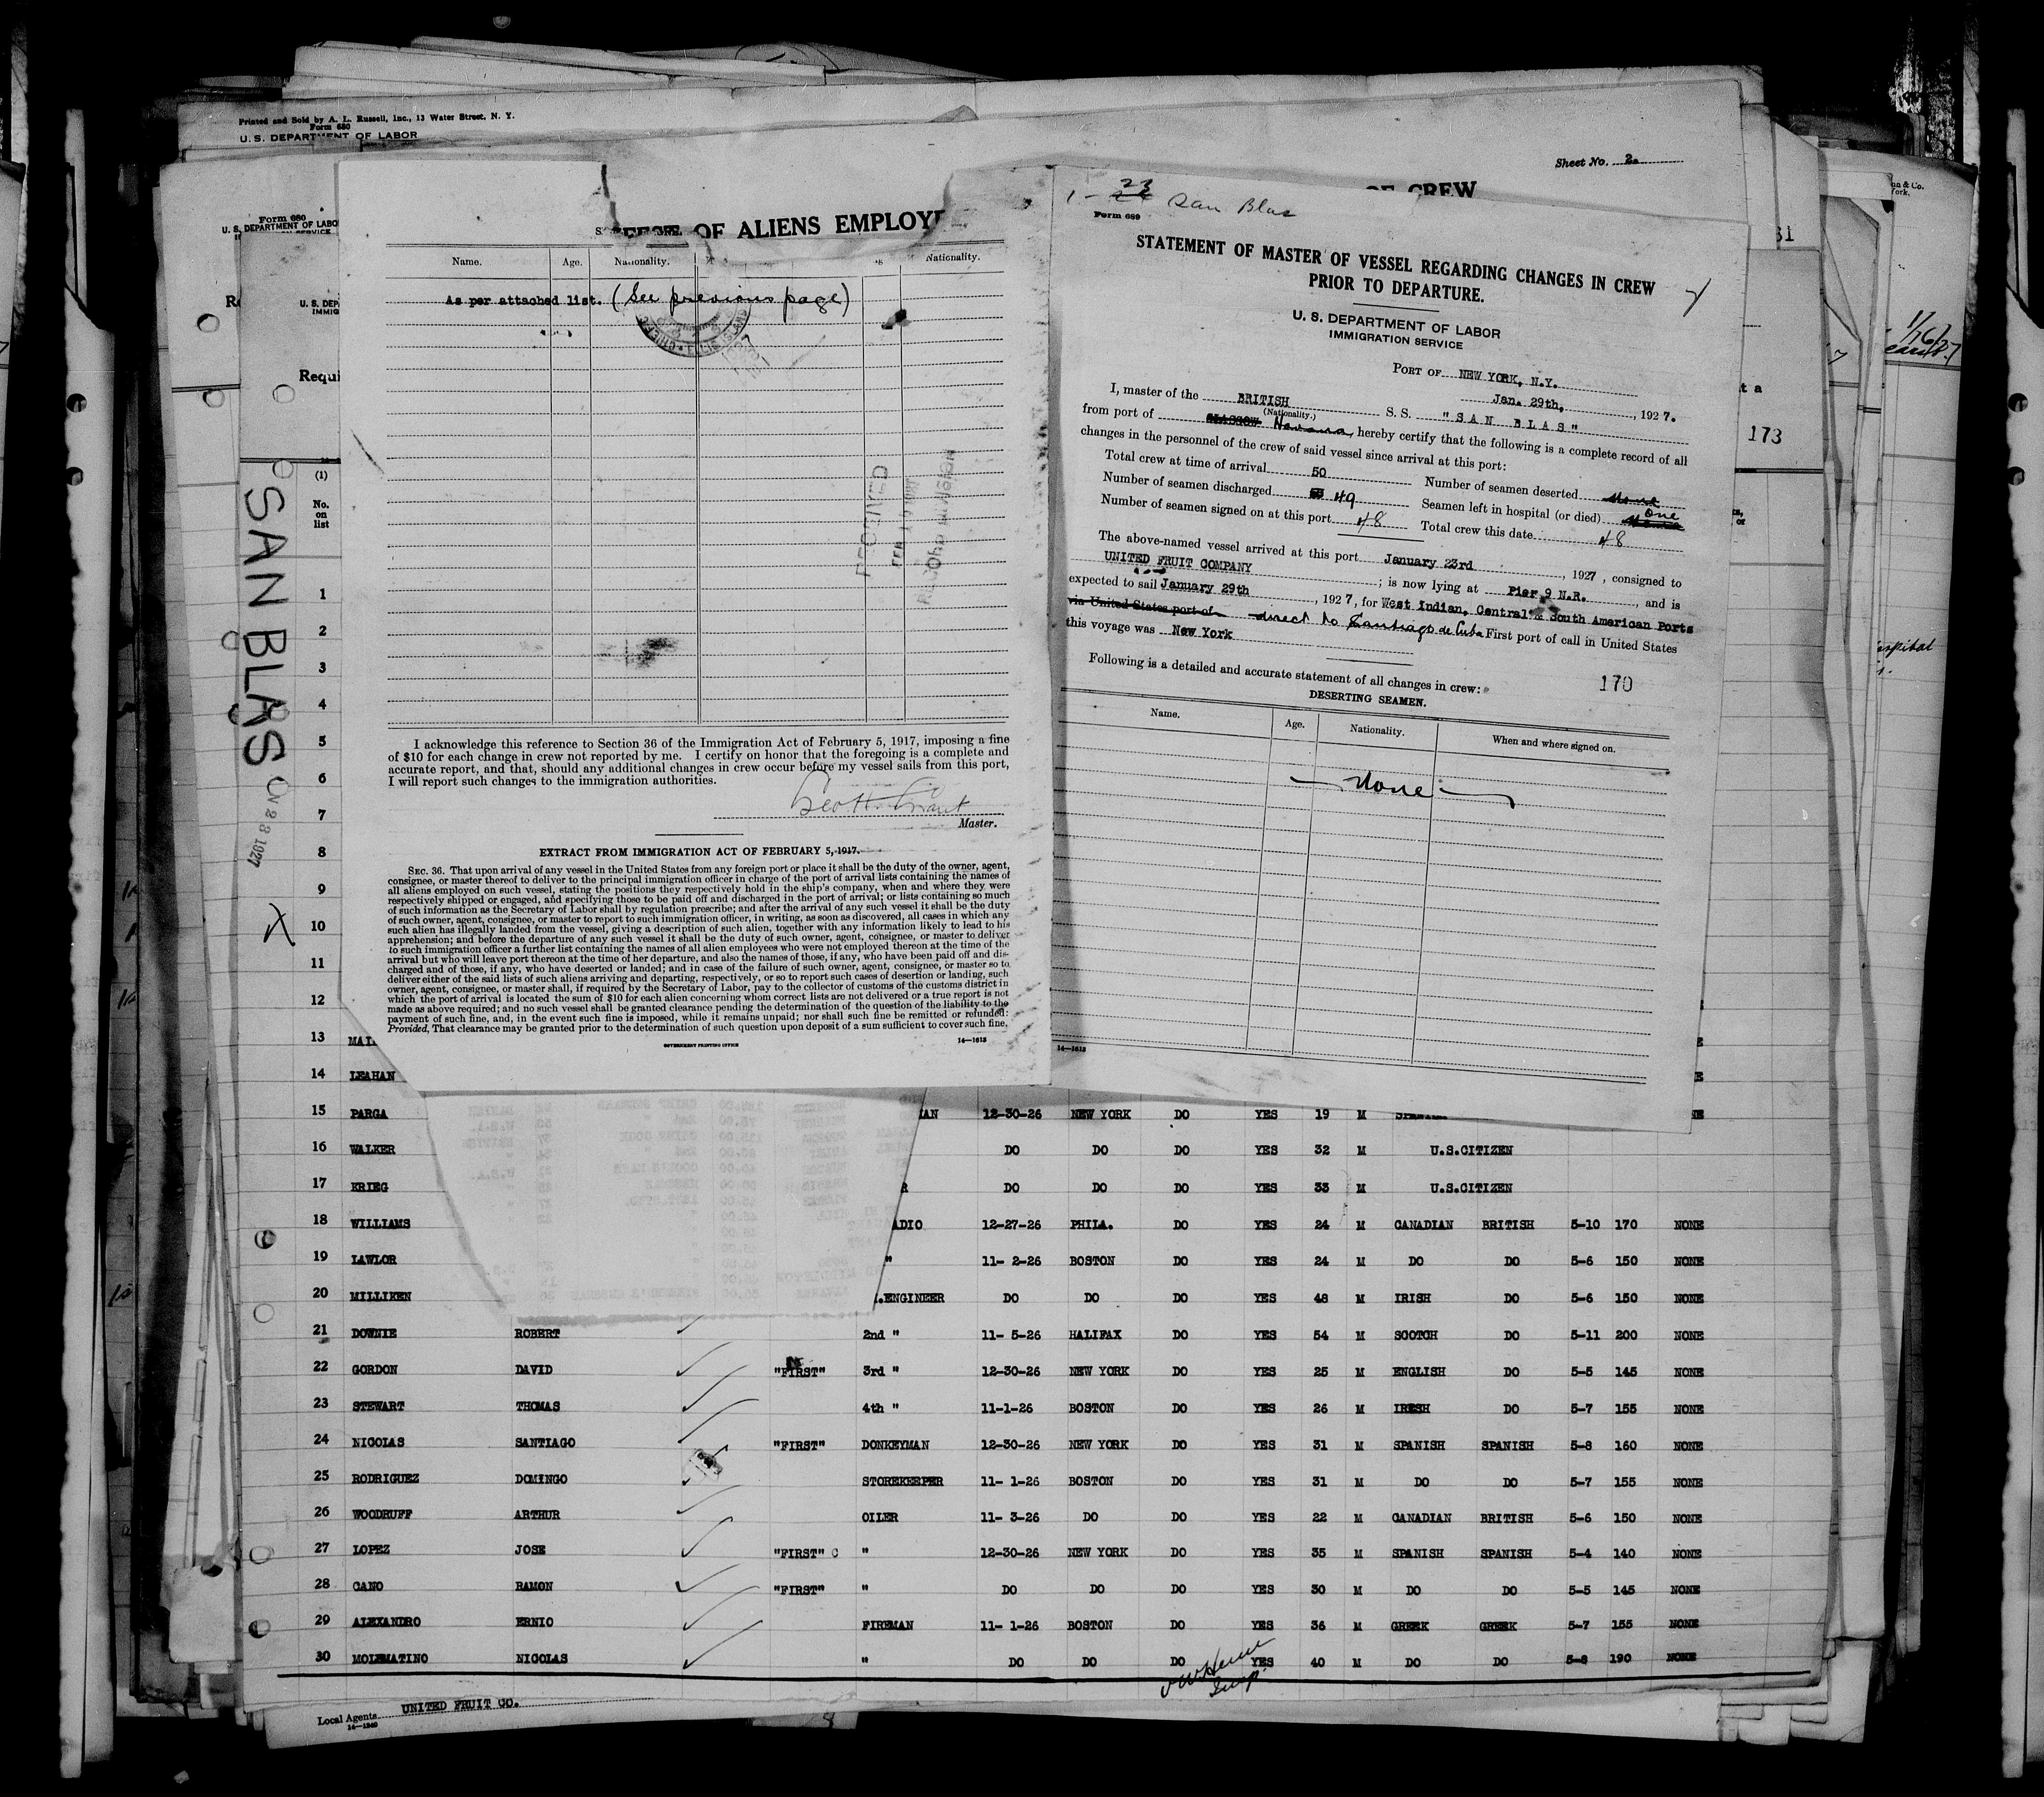 Printed and Sold by A. L. Russell, Inc., 13 Water Street, N. Y.
Form 680
U. S. DEPARTMENT OF LABOR
Sheet No. 2
OF CREW
Form 680
U. S. DEPARTMENT OF LABO
U. S. DEP
IMMIG
Requi
(1)
No.
on
list
SAN BLAS
N 23 1927
OF ALIENS EMPLOY
Name. Age. Nationality. Nationality.
As per attached list. (See previous page)
RECEIVED
I acknowledge this reference to Section 36 of the Immigration Act of February 5, 1917, imposing a fine
of $10 for each change in crew not reported by me. I certify on honor that the foregoing is a complete and
accurate report, and that, should any additional changes in crew occur before my vessel sails from this port,
I will report such changes to the immigration authorities.
Master.
EXTRACT FROM IMMIGRATION ACT OF FEBRUARY 5, 1917.
SEC. 36. That upon arrival of any vessel in the United States from any foreign port or place it shall be the duty of the owner, agent,
consignee, or master thereof to deliver to the principal immigration officer in charge of the port of arrival lists containing the names of
all aliens employed on such vessel, stating the positions they respectively hold in the ship's company, when and where they were
respectively shipped or engaged, and specifying those to be paid off and discharged in the port of arrival; or lists containing so much
of such information as the Secretary of Labor shall by regulation prescribe; and after the arrival of any such vessel it shall be the duty
of such owner, agent, consignee, or master to report to such immigration officer, in writing, as soon as discovered, all cases in which any
such alien has illegally landed from the vessel, giving a description of such alien, together with any information likely to lead to his
apprehension; and before the departure of any such vessel it shall be the duty of such owner, agent, consignee, or master to deliver
to such immigration officer a further list containing the names of all alien employees who were not employed thereon at the time of the
arrival but who will leave port thereon at the time of her departure, and also the names of those, if any, who have been paid off and dis-
charged and of those, if any, who have deserted or landed; and in case of the failure of such owner, agent, consignee, or master so to
deliver either of the said lists of such aliens arriving and departing, respectively, or so to report such cases of desertion or landing, such
owner, agent, consignee, or master shall, if required by the Secretary of Labor, pay to the collector of customs of the customs district in
which the port of arrival is located the sum of $10 for each alien concerning whom correct lists are not delivered or a true report is not
made as above required; and no such vessel shall be granted clearance pending the determination of the question of the liability to the
payment of such fine, and, in the event such fine is imposed, while it remains unpaid; nor shall such fine be remitted or refunded:
Provided, That clearance may be granted prior to the determination of such question upon deposit of a sum sufficient to cover such fine.
GOVERNMENT PRINTING OFFICE
14—1613
1 - 23 San Blas
Form 689
STATEMENT OF MASTER OF VESSEL REGARDING CHANGES IN CREW
PRIOR TO DEPARTURE.
U. S. DEPARTMENT OF LABOR
IMMIGRATION SERVICE
PORT OF NEW YORK, N.Y.
Jan. 29th, , 1927.
I, master of the BRITISH S. S. "SAN BLAS"
(Nationality.)
from port of GLASGOW Havana, hereby certify that the following is a complete record of all
changes in the personnel of the crew of said vessel since arrival at this port:
Total crew at time of arrival 50 Number of seamen deserted None
Number of seamen discharged 49 Seamen left in hospital (or died) None One
Number of seamen signed on at this port 48 Total crew this date 48
The above-named vessel arrived at this port January 23rd , 1927, consigned to
UNITED FRUIT COMPANY ; is now lying at Pier 9 N.R. , and is
expected to sail January 29th , 1927, for West Indian, Central & South American Ports
via United States port of direct to Santiago de Cuba First port of call in United States
this voyage was New York
Following is a detailed and accurate statement of all changes in crew:
170
DESERTING SEAMEN.
Name. Age. Nationality. When and where signed on.
None
14—1613
173
1
2
3
4
5
6
7
8
9
10
11
12
13 MAI
14 LEAHAN
15 PARGA AN 12-30-26 NEW YORK DO YES 19 M
16 WALKER DO DO DO YES 32 M U.S.CITIZEN
17 KRIEG R DO DO DO YES 33 M U.S.CITIZEN
18 WILLIAMS ADIO 12-27-26 PHILA. DO YES 24 M CANADIAN BRITISH 5-10 170 NONE
19 LAWLOR " 11- 2-26 BOSTON DO YES 24 M DO DO 5-6 150 NONE
20 MILLIKEN .ENGINEER DO DO DO YES 48 M IRISH DO 5-6 150 NONE
21 DOWNIE ROBERT 2nd " 11- 5-26 HALIFAX DO YES 54 M SCOTCH DO 5-11 200 NONE
22 GORDON DAVID "FIRST" 3rd " 12-30-26 NEW YORK DO YES 25 M ENGLISH DO 5-5 145 NONE
23 STEWART THOMAS 4th " 11-1-26 BOSTON DO YES 26 M IRISH DO 5-7 155 NONE
24 NICOLAS SANTIAGO "FIRST" DONKEYMAN 12-30-26 NEW YORK DO YES 31 M SPANISH SPANISH 5-8 160 NONE
25 RODRIGUEZ DOMINGO STOREKEEPER 11- 1-26 BOSTON DO YES 31 M DO DO 5-7 155 NONE
26 WOODRUFF ARTHUR OILER 11- 3-26 DO DO YES 22 M CANADIAN BRITISH 5-6 150 NONE
27 LOPEZ JOSE "FIRST" C " 12-30-26 NEW YORK DO YES 35 M SPANISH SPANISH 5-4 140 NONE
28 CANO RAMON "FIRST" " DO DO DO YES 30 M DO DO 5-5 145 NONE
29 ALEXANDRO ERNIO FIREMAN 11- 1-26 BOSTON DO YES 36 M GREEK GREEK 5-7 155 NONE
30 MOLEMATINO NICOLAS " DO DO DO YES 40 M DO DO 5-8 190 NONE
Local Agents UNITED FRUIT CO.
14—1240